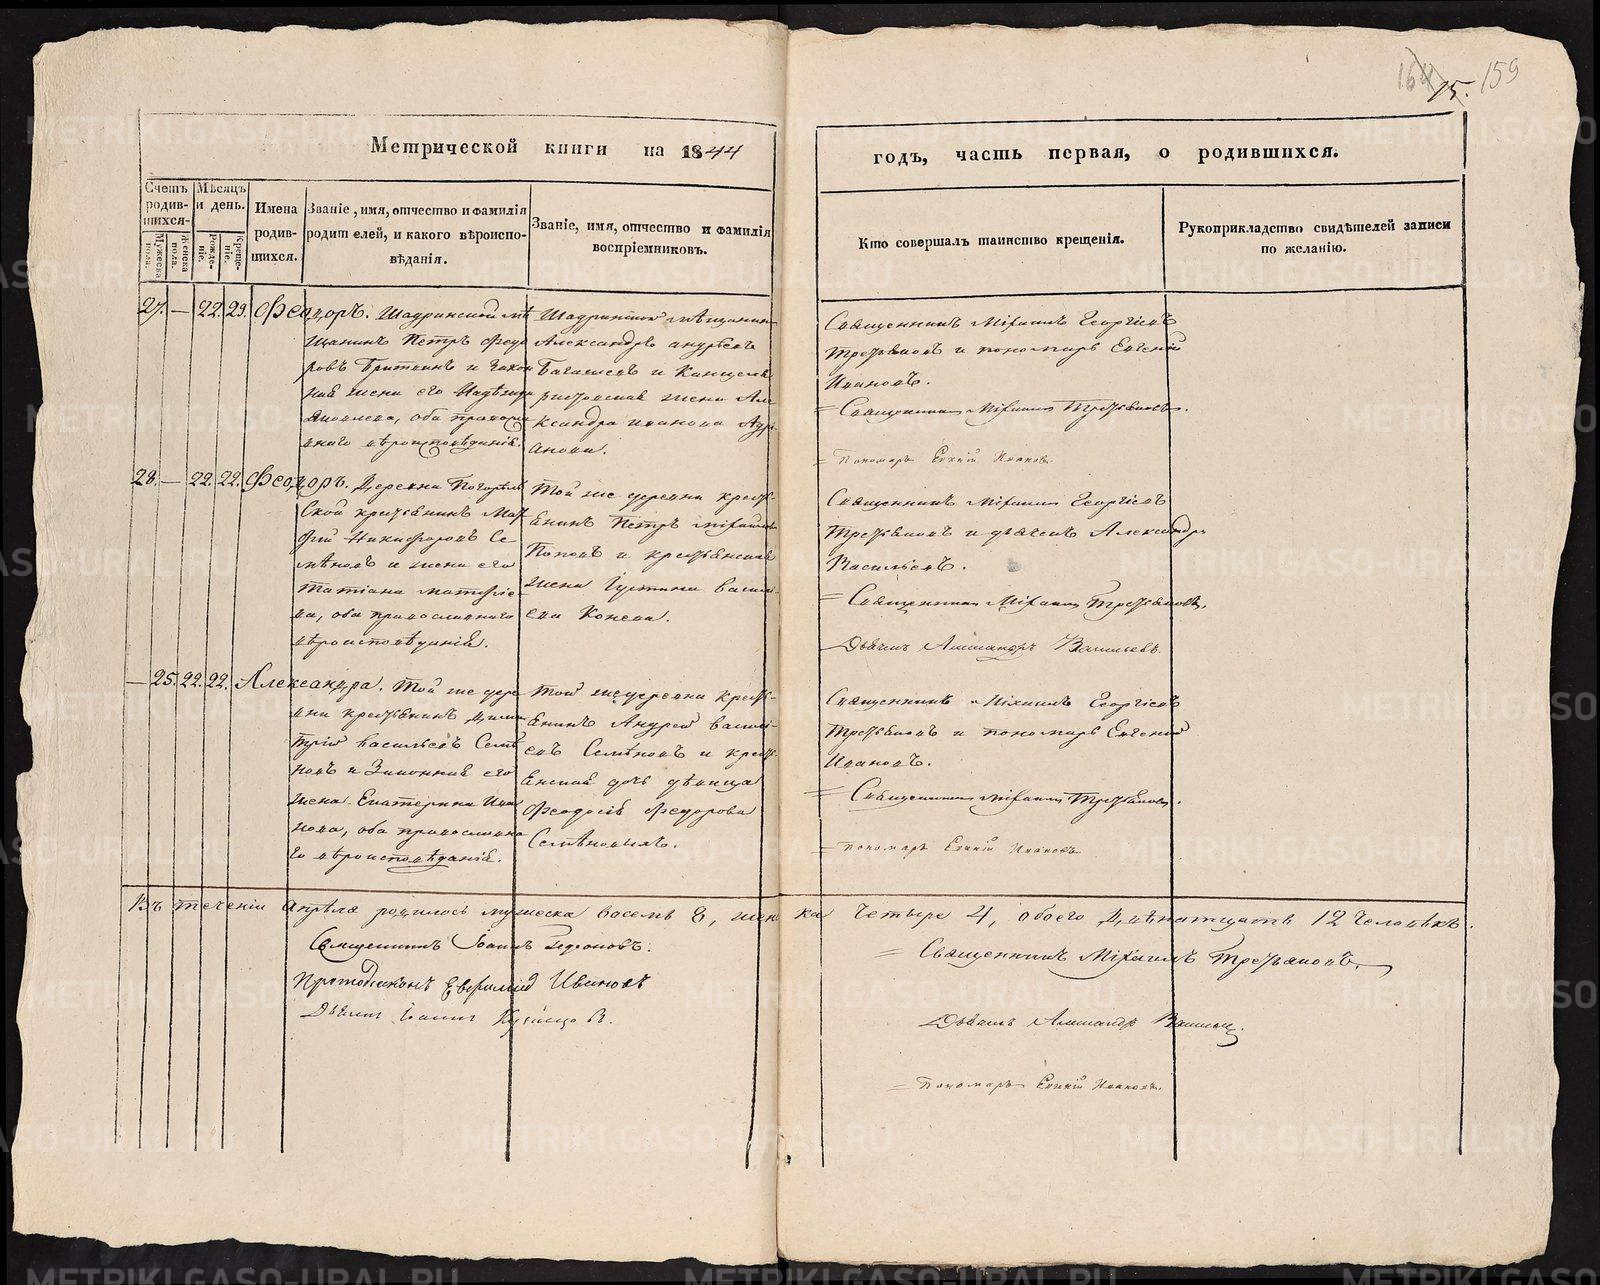 164 15. 159
Метрической книги на 1844
годъ, часть первая, о родившихся.
Счетъ родив-шихся.
Мѣсяцъ и день.
Мужеска пола.
Женска пола.
Рожде-ніе.
Креще-ніе.
Имена родив-шихся.
Званіе, имя, отчество и фамилія
родителей, и какого вѣроиспо-
вѣданія.
Званіе, имя, отчество и фамилія
воспріемниковъ.
Кто совершалъ таинство крещенія.
Рукоприкладство свидѣтелей записи
по желанію.
27. — 22. 29. Феодоръ.
Шадринской мѣ
щанинъ Петръ Федо
ровъ и закон
ная жена его
Яковлева, оба правосла
внаго вѣроисповѣданія.
Шадринской мѣщанинъ
Александръ Андреевъ
и Канцеля
ристская жена Але
ксандра Иванова Адрі
анова.
Священникъ Михаилъ Георгіевъ
Трезвановъ и пономарь Евгеній
Ивановъ.
= Священникъ Михаилъ Трезвановъ.
= Пономарь Евгеній Ивановъ
28. — 22. 22. Феодоръ.
Деревни Погорѣль
ской крестьянинъ
Никифоровъ Се
мѣновъ и жена его
Татіана
ва, оба православнаго
вѣроисповѣданія.
Той же деревни кресть
янинъ Петръ Михайловъ
Поповъ и крестьянская
жена Іустина Василь
ева Конева.
Священникъ Михаилъ Георгіевъ
Трезвановъ и дьячекъ Александръ
Васильевъ.
= Священникъ Михаилъ Трезвановъ.
Дьячекъ Александръ Васильевъ.
— 25. 22. 22. Александра.
Той же дере
вни крестьянинъ Дими
трій Васильевъ Семѣ
новъ и Законная его
жена Екатерина Ива
нова, оба православна
го вѣроисповѣданія.
Той же деревни кресть
янинъ Андрей Василь
евъ Семѣновъ и кресть
янская дочь дѣвица
Феодосія Федорова
Семѣновыхъ.
Священникъ Михаилъ Георгіевъ
Трезвановъ и пономарь Евгеній
Ивановъ.
= Священникъ Михаилъ Трезвановъ.
= Пономарь Евгеній Ивановъ.
Въ теченіи Апрѣля родилось мужеска восемь 8, жен ка четыре 4, обоего двѣнатцать 12 человѣкъ.
Священникъ Іоаннъ
Протодіаконъ Ивановъ
Дьячекъ Іоаннъ
= Священникъ Михаилъ Трезвановъ.
Дьячекъ Александръ
= Пономарь Евгеній Ивановъ.
METRIKI.GASO-URAL.RU